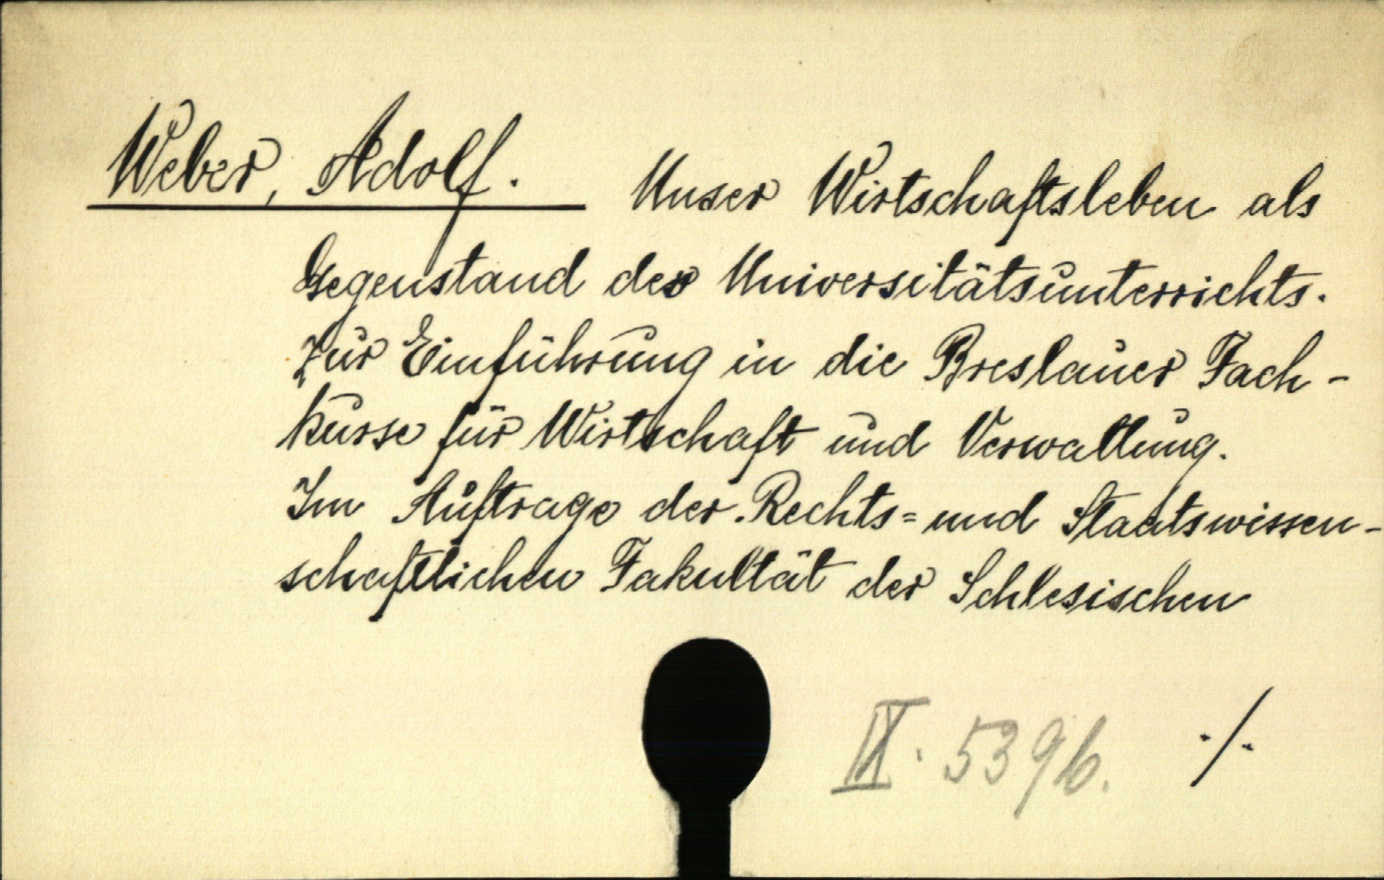 Weber, Adolf. Unser Wirtschaftsleben als
Gegenstand des Universitätsunterrichts.
Zur Einführung in die Breslauer Fach-
kurse für Wirtschaft und Verwaltung.
Im Auftrage der Rechts= und Staatswissen-
schaftlichen Fakultät der Schlesischen
IX. 5396. ./.